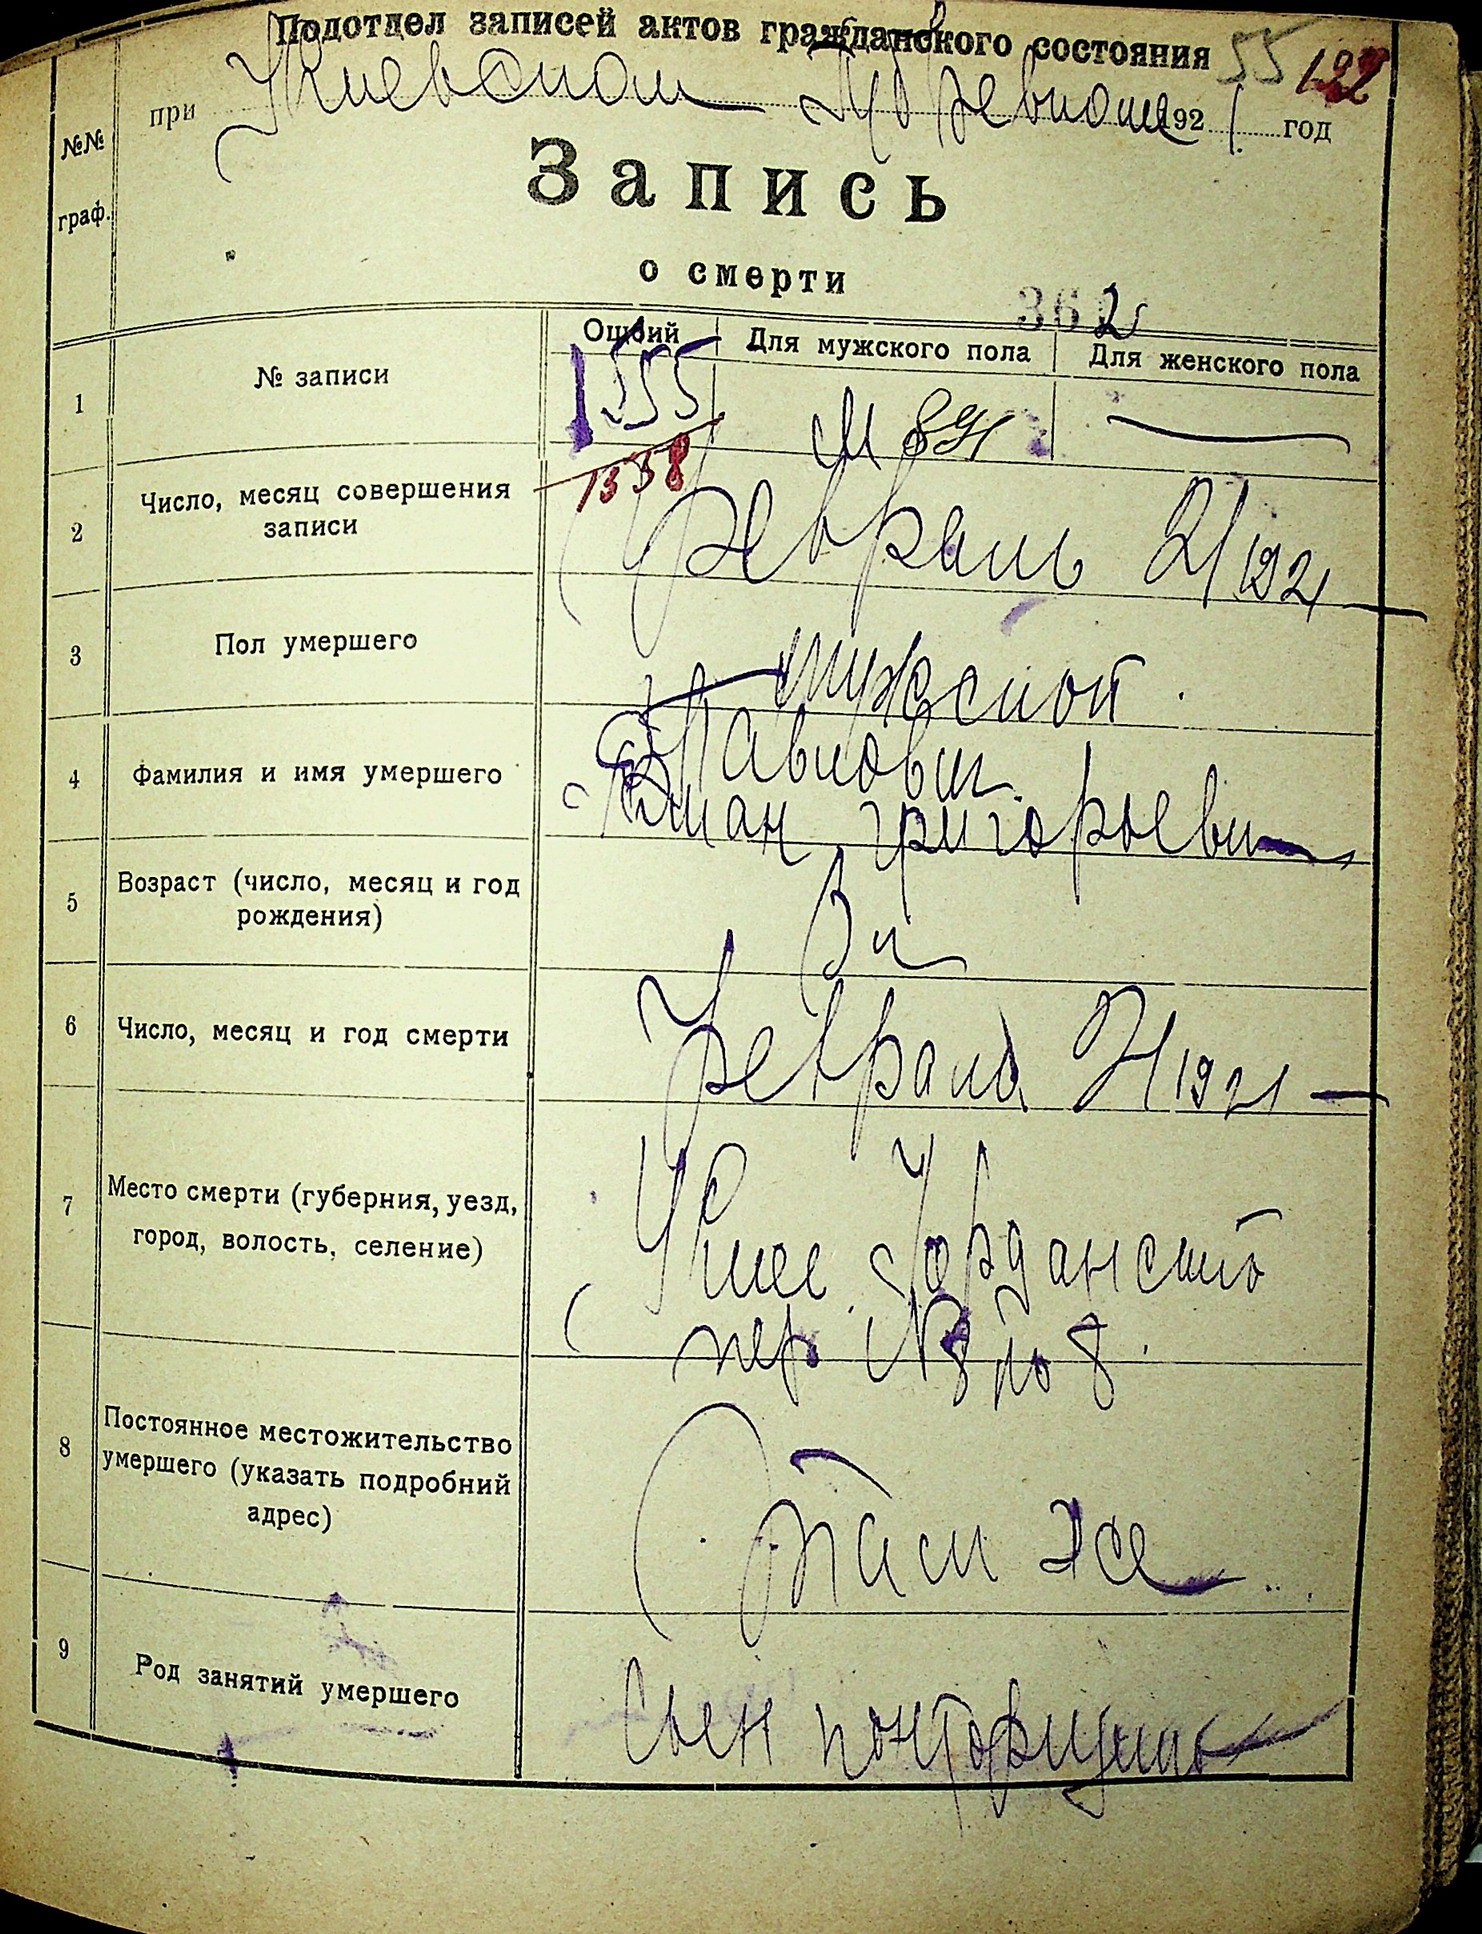 Подотдел записей актов гражданского состояния 55 122
при Киевском Губревкоме 192 1 год
№№
граф.
Запись
о смерти
362
Общий Для мужского пола Для женского пола
1 № записи 1555 М
1558
2 Число, месяц совершения
записи
Февраль 21 1921
3 Пол умершего мужской
4 Фамилия и имя умершего
Павлович
Григорьевич
5 Возраст (число, месяц и год
рождения)
6 Число, месяц и год смерти Февраля 21 1921
7 Место смерти (губерния, уезд,
город, волость, селение)
Киев Иорданский
пер №
8 Постоянное местожительство
умершего (указать подробний
адрес)
там же
9 Род занятий умершего сын конторщика